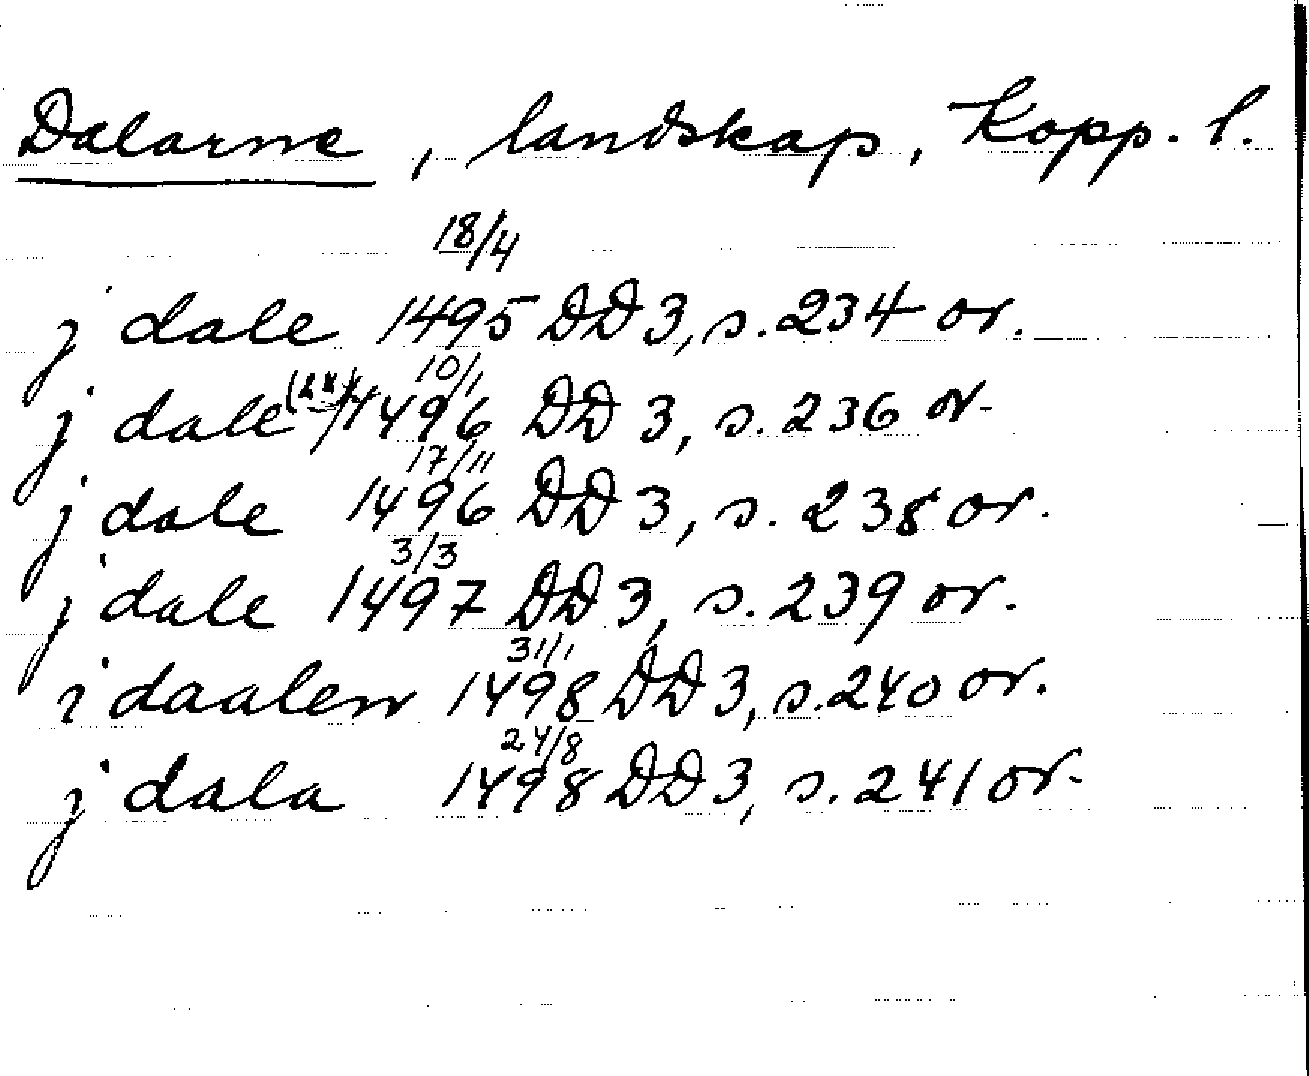 Dalarne, landskap, Kopp. l.
18/4
j dale 1495 DD 3, s. 234 or.
10/1
j dale 1496 DD 3, s. 236 or.
17/11
j dale 1496 DD 3, s. 238 or.
3/3
j dale 1497 DD 3, s. 239 or.
31/1
i daalen 1498 DD 3, s. 240 or.
24/8
j dala 1498 DD 3, s. 241 or.